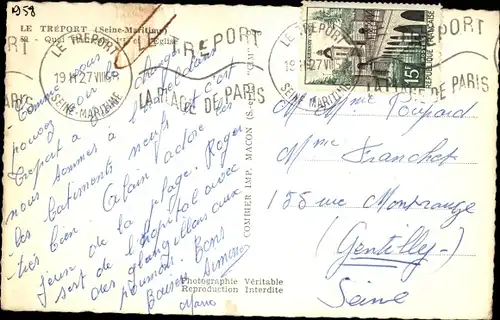 1958
LE TRÉPORT (Seine-Maritime)
52 - Quai et l'Église
LE TREPORT
19 H 27 VIII 58
SEINE-MARITIME
LE TREPORT
LA PLAGE DE PARIS
LE TREPORT
19 H 27 VIII 58
SEINE-MARITIME
LA PLAGE DE PARIS
15F
REPUBLIQUE FRANÇAISE
Comme vous
pouvez voir le
Tréport a changé,
nous sommes à l'hôtel dans
les batiments neufs et c'est
très bien. Alain adore les
jeux de la plage. Roger
sort de l'hôpital avec
des
poumons. Bons
Baisers Simone
Mario
COMBIER IMP. MACON (S.-et-L.) "CIM"
Photographie Véritable
Reproduction Interdite
M. Mme Poupard
Mme Franchet
155 rue Montrouge
(Gentilly)
Seine